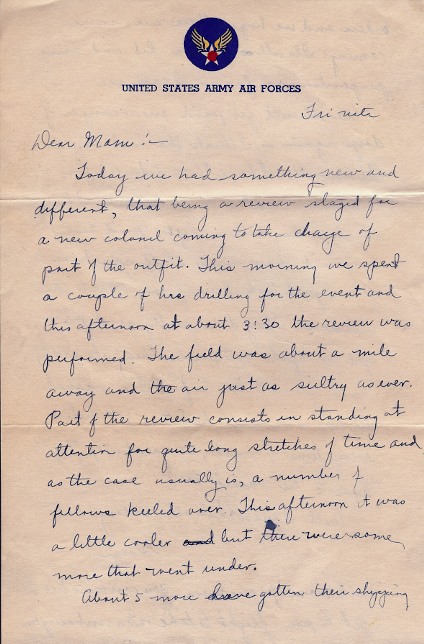 UNITED STATES ARMY AIR FORCES
Fri nite
Dear Mom :-
Today we had something new and
different, that being a review staged for
a new colonel coming to take charge of
part of the outfit. This morning we spent
a couple of hrs drilling for the event and
this afternoon at about 3:30 the review was
performed. The field was about a mile
away and the air just as sultry as ever.
Part of the review consists in standing at
attention for quite long stretches of time and
as the case usually is, a number of
fellows keeled over. This afternoon it was
a little cooler and but there were some
more that went under.
About 5 more have gotten their shipping